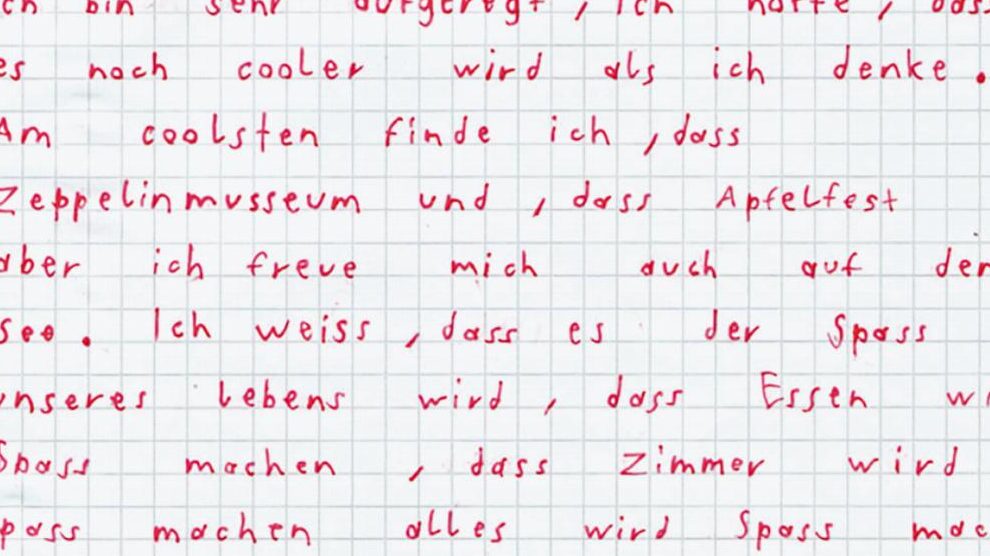 ch bin sehr aufgeregt, ich hoffe, dass
es noch cooler wird als ich denke.
Am coolsten finde ich, dass
Zeppelinmusseum und, dass Apfelfest
aber ich freue mich auch auf den
See. Ich weiss, dass es der Spass
unseres Lebens wird, dass Essen wi
Spass machen, dass Zimmer wird
pass machen alles wird Spass mac